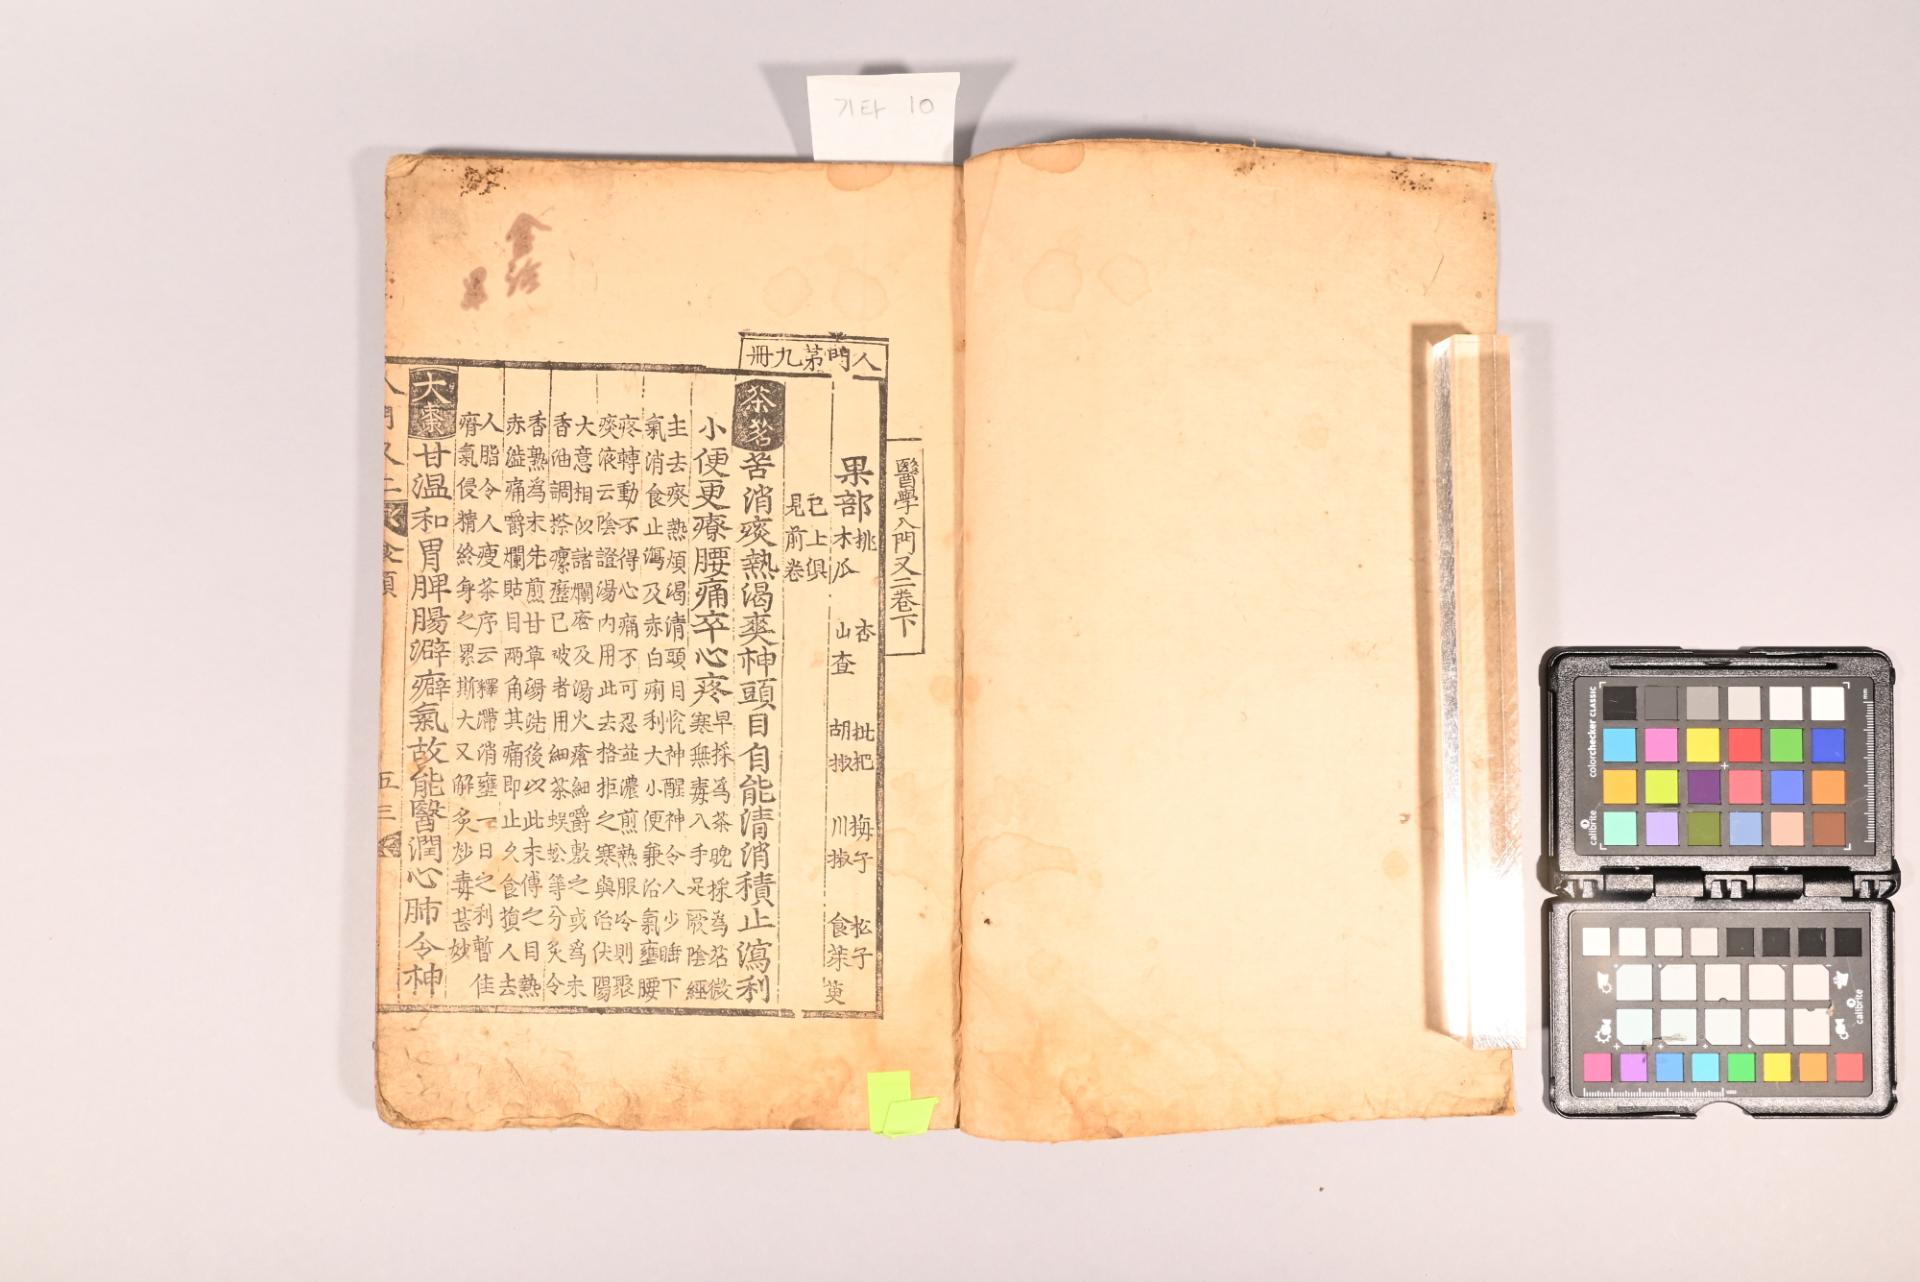 기타 10
人門第九冊
醫學入門又二卷下
果部 桃 杏 枇把 梅子 松子
木瓜 山査 胡椒 川椒 食茱萸
已上俱
見前卷
茶茗 苦消痰熱渴爽神頭目自能清消積止瀉利
小便更療腰痛卒心疼 早採爲茶晚採爲茗微
寒無毒入手足厥陰經
主去痰熱煩渴清頭目恍神醒神令人少睡下
氣消食止瀉及赤白痢利大小便兼治氣壅腰
疼轉動不得心痛不可忍並濃煎熱服冷則聚
痰液云陰證湯內用此去格拒之寒與治伏陽
大意相似諸爛瘡及湯火瘡細嚼敷之或爲末
香油調搽瘰癧已破者用細茶蜈蚣等分炙令
香熟爲末先煎甘草湯洗後以此末傅之目熱
赤澁痛嚼爛貼目兩角其痛即止久食損人去
人脂令人瘦茶序云釋滯消壅一日之利暫佳
瘠氣侵精終身之累斯大又解炙炒毒甚妙
大棗 甘溫和胃脾腸澼癖氣故能醫潤心肺令神